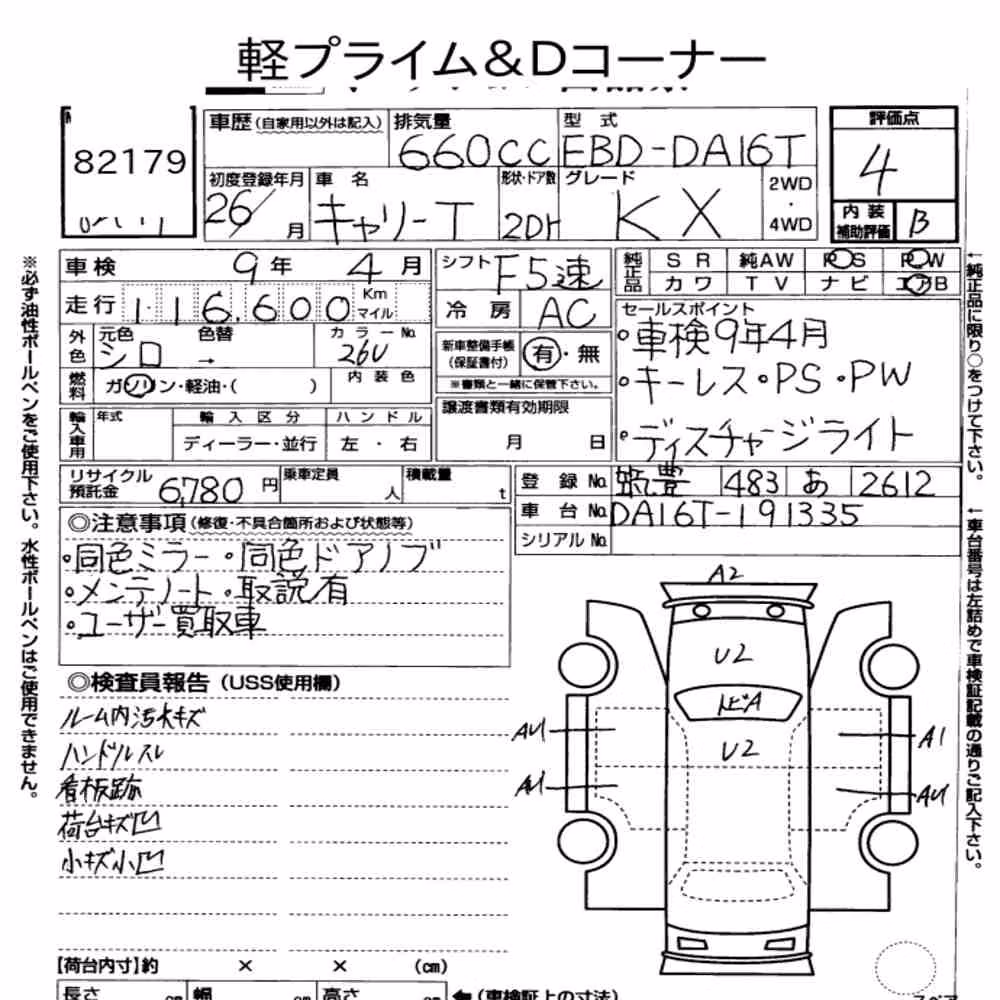 軽プライム&Dコーナー
82179
車歴(自家用以外は記入) 排気量 660cc 型式 EBD-DA16T
評価点 4
初度登録年月 26/ 月 車名 キャリーT 形状・ドア数 2DH グレード KX 2WD・4WD
内装補助評価 B
車検 9年 4月 シフト F5速
純正品 SR 純AW PS PW
カワ TV ナビ エアB
走行 116,600 Km マイル 冷房 AC
外色 元色 シロ 色替 → カラーNo. 26U
新車整備手帳(保証書付) 有・無
※書類と一緒に保管下さい。
セールスポイント
・車検9年4月
・キーレス・PS・PW
・ディスチャージライト
燃料 ガソリン・軽油・( ) 内装色
輸入車用 年式 輸入区分 ハンドル
ディーラー・並行 左・右
譲渡書類有効期限
月 日
リサイクル預託金 6,780円 乗車定員 人 積載量 t
登録No. 筑豊 483 あ 2612
車台No. DA16T-191335
シリアルNo.
◎注意事項(修復・不具合箇所および状態等)
・同色ミラー・同色ドアノブ
・メンテノート・取説有
・ユーザー買取車
◎検査員報告(USS使用欄)
ルーム内汚れキズ
ハンドルスレ
看板跡
荷台キズ凹
小キズ小凹
A2
U2
トビA
U2
AU
A1
AU
AU
【荷台内寸】約 × × (cm)
長さ cm 幅 cm 高さ cm ←(車検証上の寸法)
スペア
※必ず油性ボールペンをご使用下さい。水性ボールペンはご使用できません。
←純正品に限り○をつけて下さい。
←車台番号は左詰めで車検証記載の通りご記入下さい。